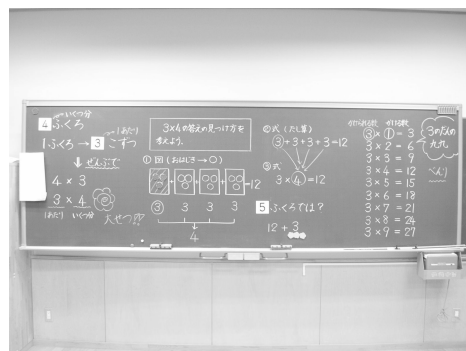 いくつ分
4 ふくろ
1ふくろ → 3 こずつ
1あたり
ぜんぶで
4 × 3
3 × 4
1あたり いくつ分
大せつ!!
3×4の答えの見つけ方を
考えよう。
① 図(おはじき→○)
+ + + =12
③ 3 3 3
4
② 式(たし算)
③+3+3+3=12
③ 式
3 × ④=12
5 ふくろでは?
12 + 3
かけられる数 かける数
③ × ① = 3
3 × 2 = 6
3 × 3 = 9
3 × 4 = 12
3 × 5 = 15
3 × 6 = 18
3 × 7 = 21
3 × 8 = 24
3 × 9 = 27
3のだんの
九九
べんり